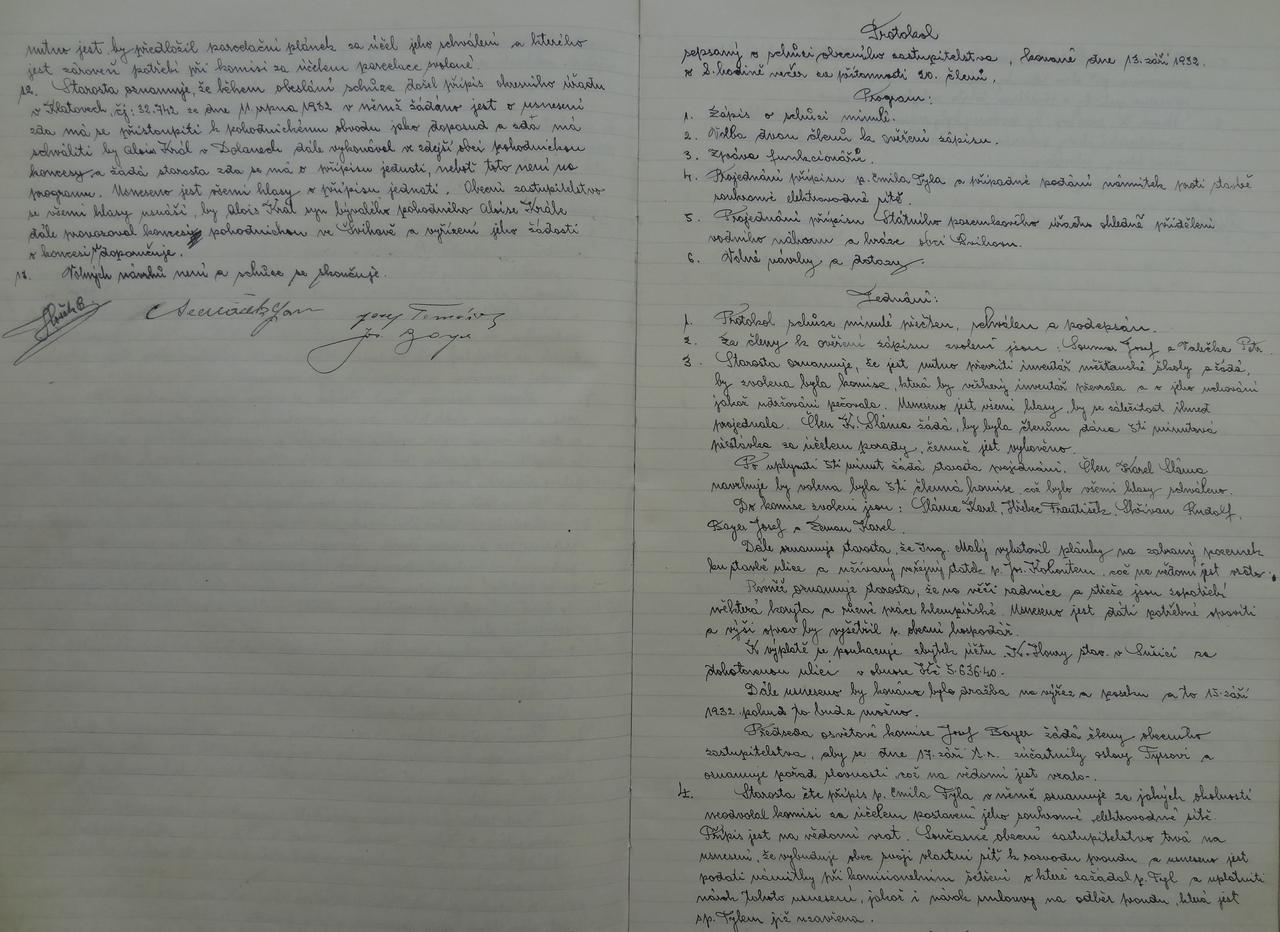 nutno jest, by předložil parcelační plánek za účel jeho schválení a kterého
jest zároveň potřebí při komisi za účelem parcelace svolané.
12. Starosta oznamuje, že během obeslání schůze došel přípis okresního úřadu
v Klatovech, čj: 32.742 ze dne 11 srpna 1932 v němž žádáno jest o usnesení
zda má se přistoupiti k pohodnickému obvodu jako doposud a zdá má
schváliti by Alois Král v Dolanech dále vykonával v zdejší obci pohodnickou
koncesy a žádá starosta zda se má o přípisu jednati, neboť toto není na
programu. Usneseno jest všemi hlasy o přípisu jednati. Obecní zastupitelstvo
se všemi hlasy usnáší, by Alois Král syn bývalého pohodného Aloise Krále
dále provozoval koncesy pohodnickou ve Švihově a vyřízení jeho žádosti
o koncesi doporučuje.
13. Volných návrhů není a schůze se skončuje.
Josef Tomášek
Jos. Bayer
Protokol
sepsaný o schůzi obecního zastupitelstva, konané dne 13. září 1932.
o 8. hodině večer za přítomnosti 20. členů.
Program:
1. Zápis o schůzi minulé.
2. Volba dvou členů k ověření zápisu.
3. Zpráva funkcionářů.
4. Projednání přípisu p. Emila Týla a případné podání námitek proti stavbě
soukromé elektrovodné sítě.
5. Projednání přípisu Státního pozemkového úřadu ohledně přidělení
vodního náhonu a hráze obci Švihovu.
6. Volné návrhy a dotazy.
Jednání:
1. Protokol schůze minulé přečten, schválen a podepsán.
2. Za členy k ověření zápisu zvoleni jsou: Soumar Josef a Valečka Petr
3. Starosta oznamuje, že jest nutno převzíti inventář měšťanské školy a žádá,
by zvolena byla komise, která by veškerý inventář převzala a o jeho uchování
jakož udržování pečovala. Usneseno jest všemi hlasy, by se záležitost ihned
projednala. Člen K. Sláma žádá, by byla členům dána 5ti minutová
přestávka za účelem porady, čemuž jest vyhověno.
Po uplynutí 5ti minut žádá starosta projednání. Člen Karel Sláma
navrhuje by volena byla 5ti členná komise, což bylo všemi hlasy schváleno.
Do komise zvoleni jsou: Sláma Karel, Hřebec František, Skřivan Rudolf,
Bayer Josef a Zeman Karel.
Dále oznamuje starosta, že Ing. Malý vyhotovil plánky na zabraný pozemek
ku stavbě ulice a užívaný veřejný statek p. Jos. Kohoutem, což na vědomí jest vzato.
Rovněž oznamuje starosta, že na věži radnice a střeše jsou zapotřebí
některá koryta a různé práce klempířské. Usneseno jest dáti potřebné opraviti
a výši oprav by vyšetřil p. obecní hospodář.
K výplatě se poukazuje zbytek účtu K. Houry stav. v Sušici za
dohotovenou ulici v obnose Kč 5.636.40.-
Dále usneseno by konána byla dražba na výřez a poseku a to 15. září
1932. pokud to bude možno.
Předseda osvětové komise Josef Bayer žádá členy obecního
zastupitelstva, aby se dne 17. září t. r. zúčastnily oslavy Tyršovi a
oznamuje pořad slavnosti, což na vědomí jest vzato.-
4. Starosta čte přípis p. Emila Týla v němž oznamuje za jakých okolností
neodvolal komisi za účelem postavení jeho soukromné elektrovodné sítě.
Přípis jest na vědomí vzat. Současně obecní zastupitelstvo trvá na
usnesení, že vybuduje obec svoji vlastní síť k rozvodu proudu a usneseno jest
podati námitky při komisionelním šetření o které zažádal p. Tyl a uplatniti
nárok tohoto usnesení, jakož i nárok smlouvy na odběr proudu, která jest
s p. Týlem již uzavřena.